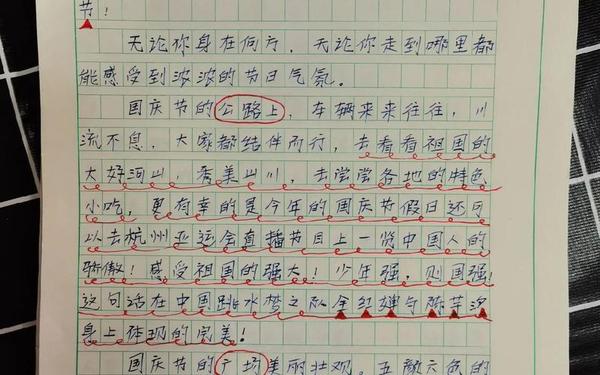 节！
无论你身在何方，无论你走到哪里都
能感受到浓浓的节日气氛。
国庆节的公路上，车辆来来往往，川
流不息，大家都结伴而行，去看看祖国的
大好河山，秀美山川，去尝尝各地的特色
小吃，更有幸的是今年的国庆节假日还可
以去杭州亚运会直播节目上一览中国人的
骄傲！感受祖国的强大！少年强，则国强！
这句话在中国跳水梦之队全红婵与陈芋汐
身上体现的完美！
国庆节的广场美丽壮观，五颜六色的